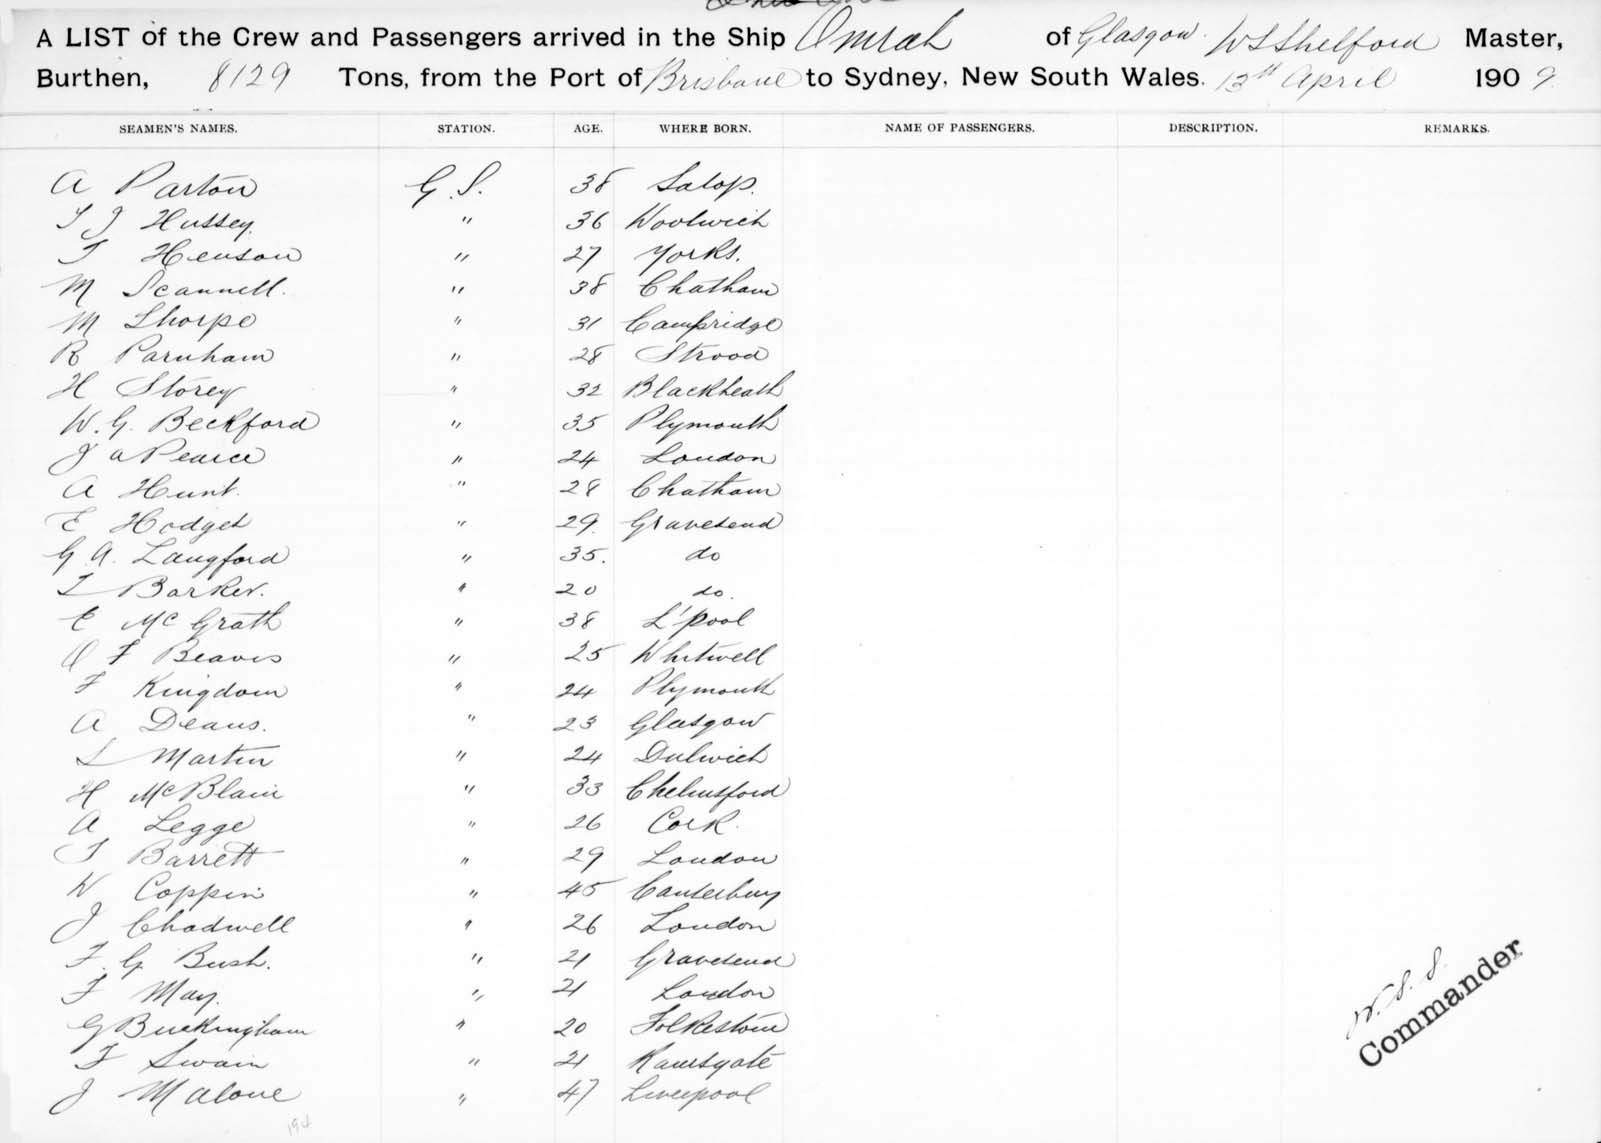 A LIST of the Crew and Passengers arrived in the Ship Omrah of Glasgow. W S Shelford Master,
Burthen, 8129 Tons, from the Port of Brisbane to Sydney, New South Wales. 13th April 1909.
SEAMEN'S NAMES. STATION. AGE. WHERE BORN. NAME OF PASSENGERS. DESCRIPTION. REMARKS.
A Parton G.S. 38 Salop.
T J Hussey. " 36 Woolwich
T Henson " 27 Yorks.
M Scannell. " 38 Chatham
M Thorpe " 31 Cambridge
R Parnham " 28 Strood
H Storey " 32 Blackheath
W. G. Beckford " 35 Plymouth
J A Pearce " 24 London
A Hunt. " 28 Chatham
E Hodges " 29. Gravesend
G. A. Langford " 35. do
T Barker. " 20 do.
E McGrath " 38 L'pool
F Beavis " 25 Whitwell
F Kingdom " 24 Plymouth
A Deans. " 23 Glasgow
L Martin " 24 Dulwich
H McBlain " 33 Chelmsford
A Legge " 26 Cork.
T Barrett " 29 London
W Coppin " 45 Canterbury
J Chadwell " 26 London
F. G. Bush. " 21 Gravesend
F May. " 21 London
G Buckingham " 20 Folkestone
F Swain " 21 Ramsgate
J Malone " 47 Liverpool
W. S. S.
Commander
194